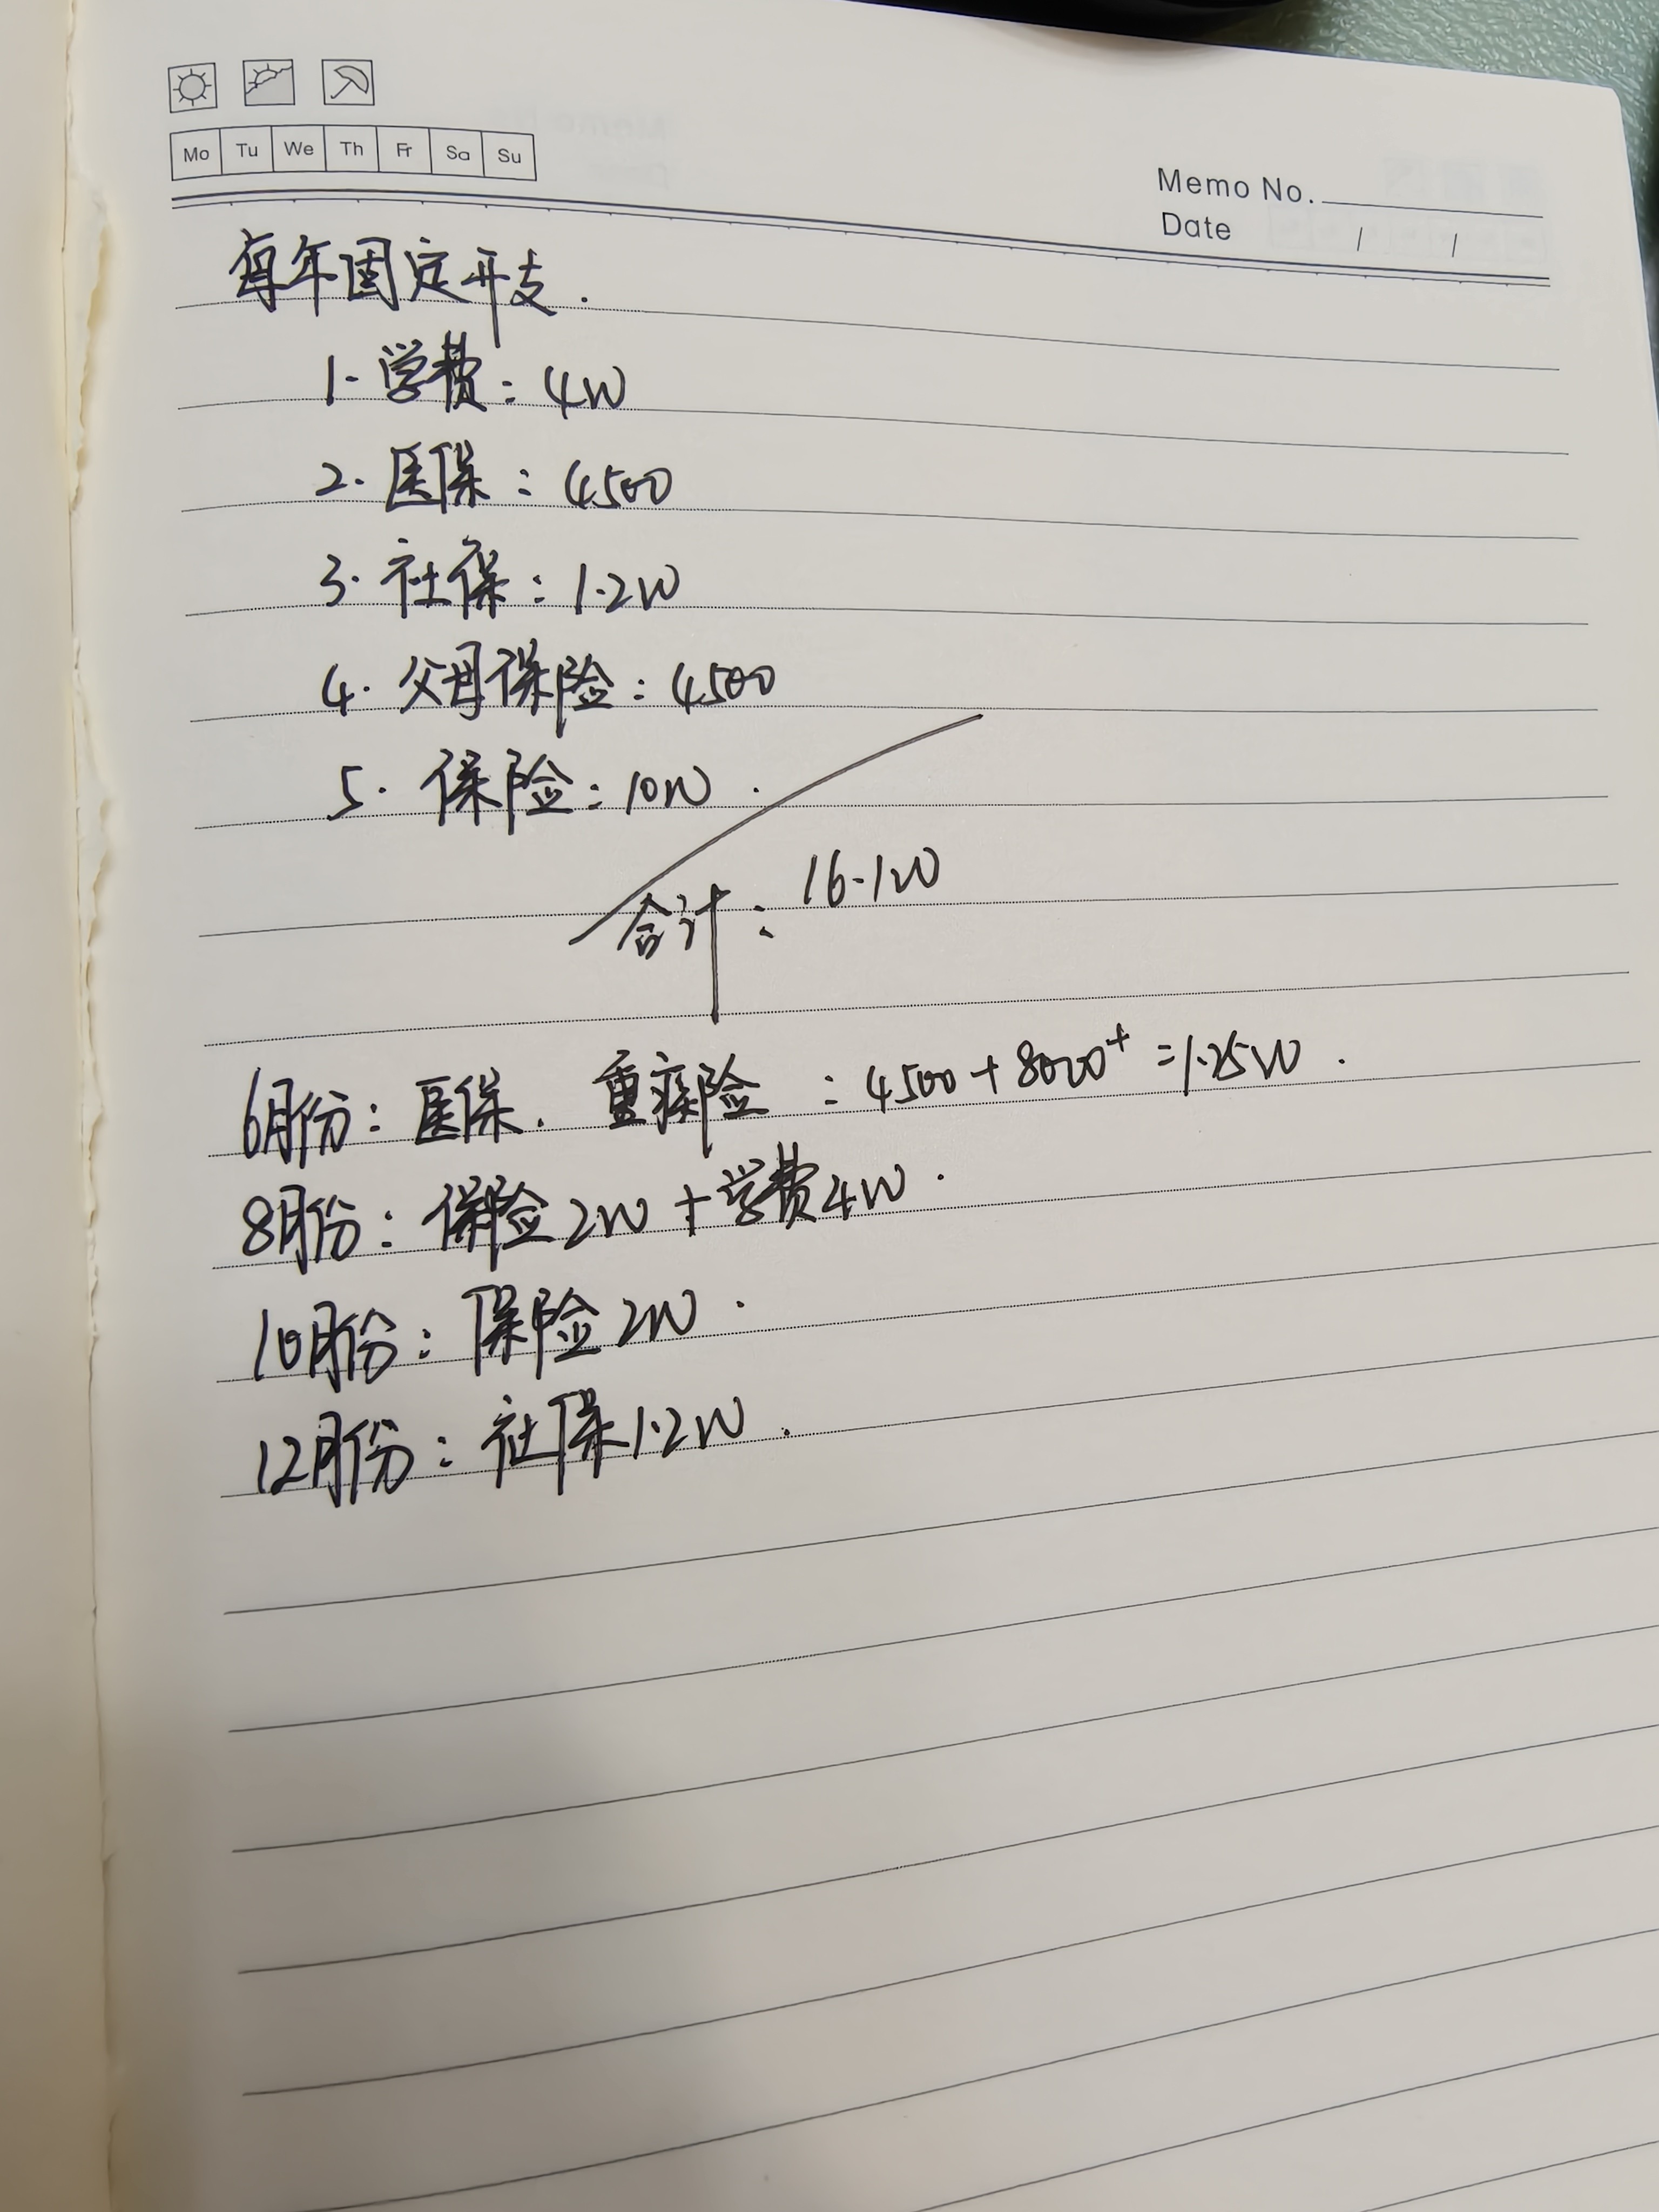 Mo Tu We Th Fr Sa Su
Memo No.
Date / /
每年固定开支.
1. 学费: 4W
2. 医保: 4500
3. 社保: 1.2W
4. 父母保险: 4500
5. 保险: 10W.
合计: 16.1W
6月份: 医保. 重疾险: 4500+8000⁺=1.25W.
8月份: 保险2W+学费4W.
10月份: 保险2W.
12月份: 社保1.2W.